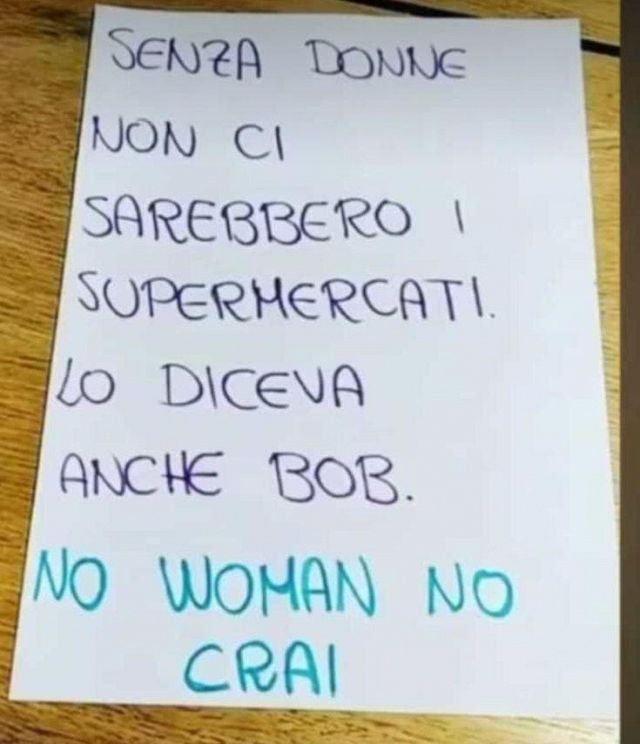 SENZA DONNE
NON CI
SAREBBERO I
SUPERMERCATI.
LO DICEVA
ANCHE BOB.
NO WOMAN NO
CRAI